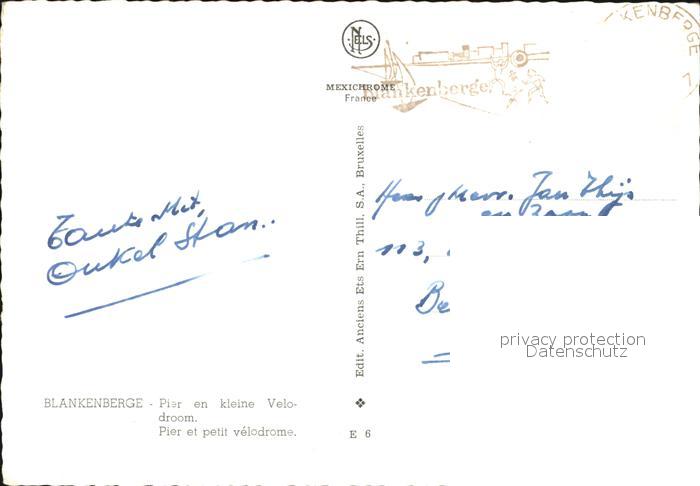 NELS
MEXICHROME
France
Blankenberge
KENBERGE
Edit. Anciens Ets Ern Thill, S.A., Bruxelles
Tante Mit,
Onkel Stan..
Heer Mevr. Jan Thijs
en
113,
Be
privacy protection
Datenschutz
BLANKENBERGE - Pier en kleine Velo-
droom.
Pier et petit vélodrome.
E 6